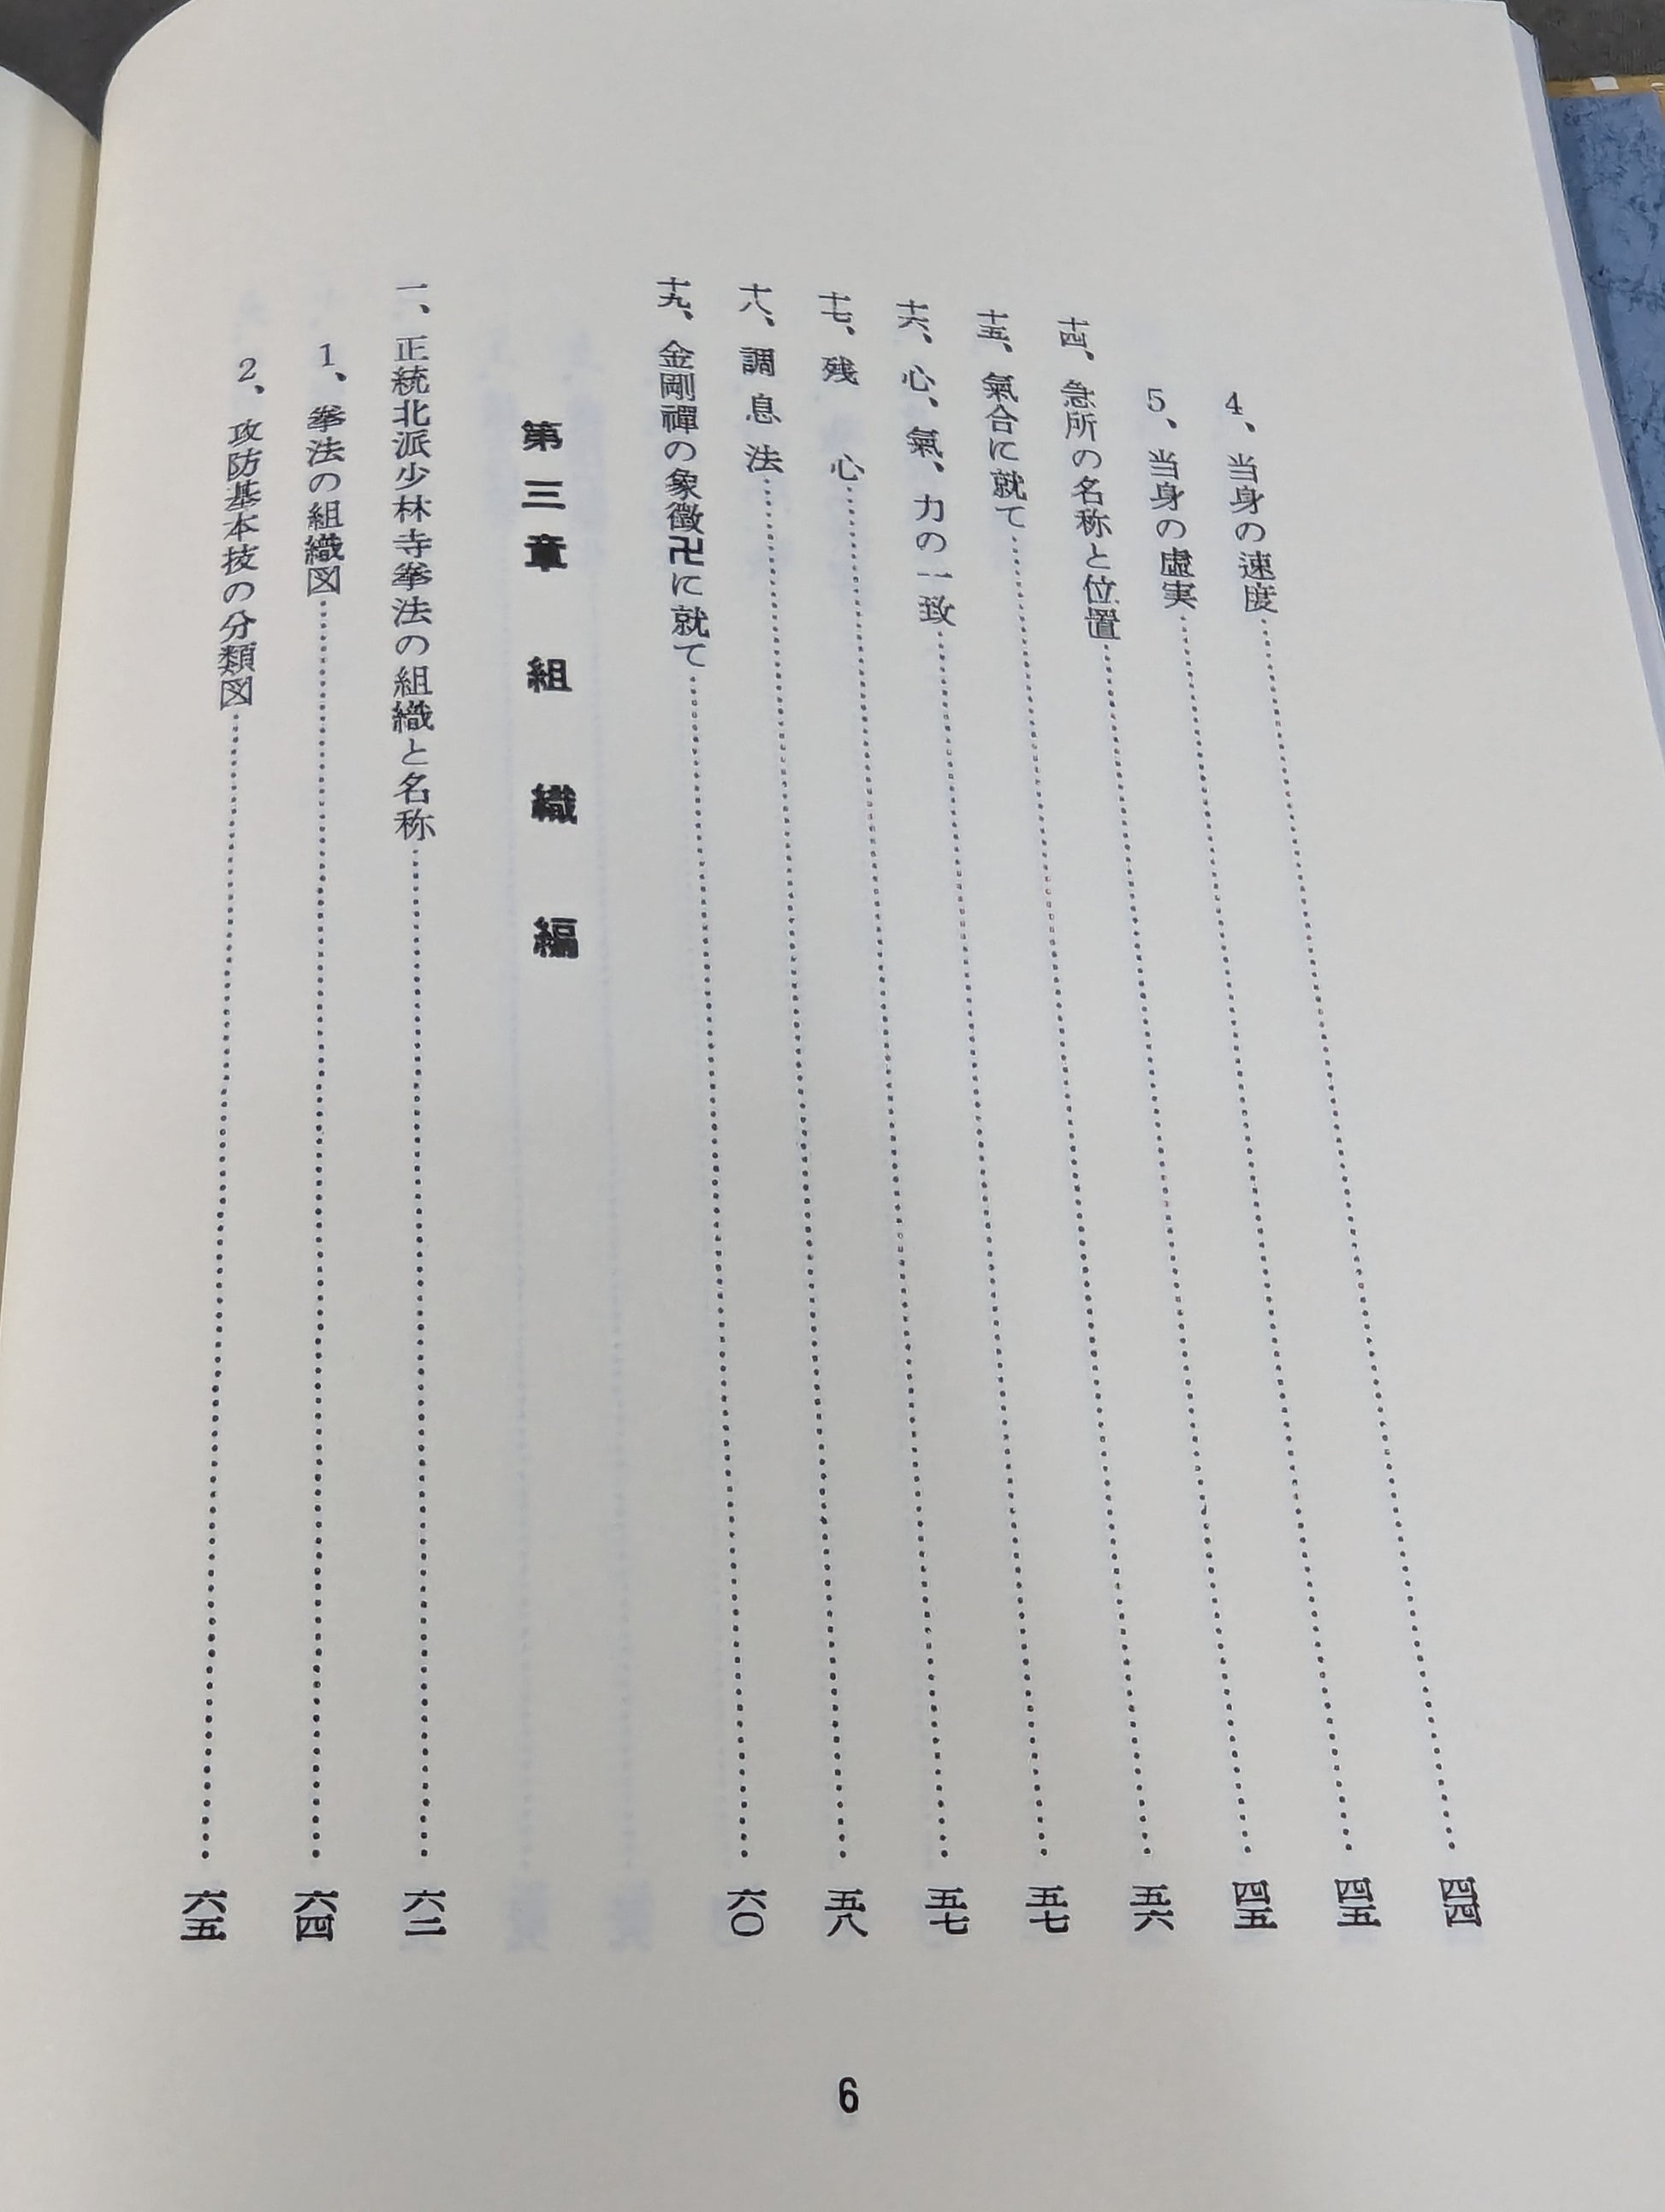 4、当身の速度…………四四
5、当身の虚実…………四五
十四、急所の名称と位置…………四五
十五、氣合に就て…………五六
十六、心、氣、力の一致…………五七
十七、残心…………五七
十八、調息法…………五八
十九、金剛禪の象徴卍に就て…………六〇
第三章 組織編
一、正統北派少林寺拳法の組織と名称…………六二
1、拳法の組織図…………六四
2、攻防基本技の分類図…………六五
6